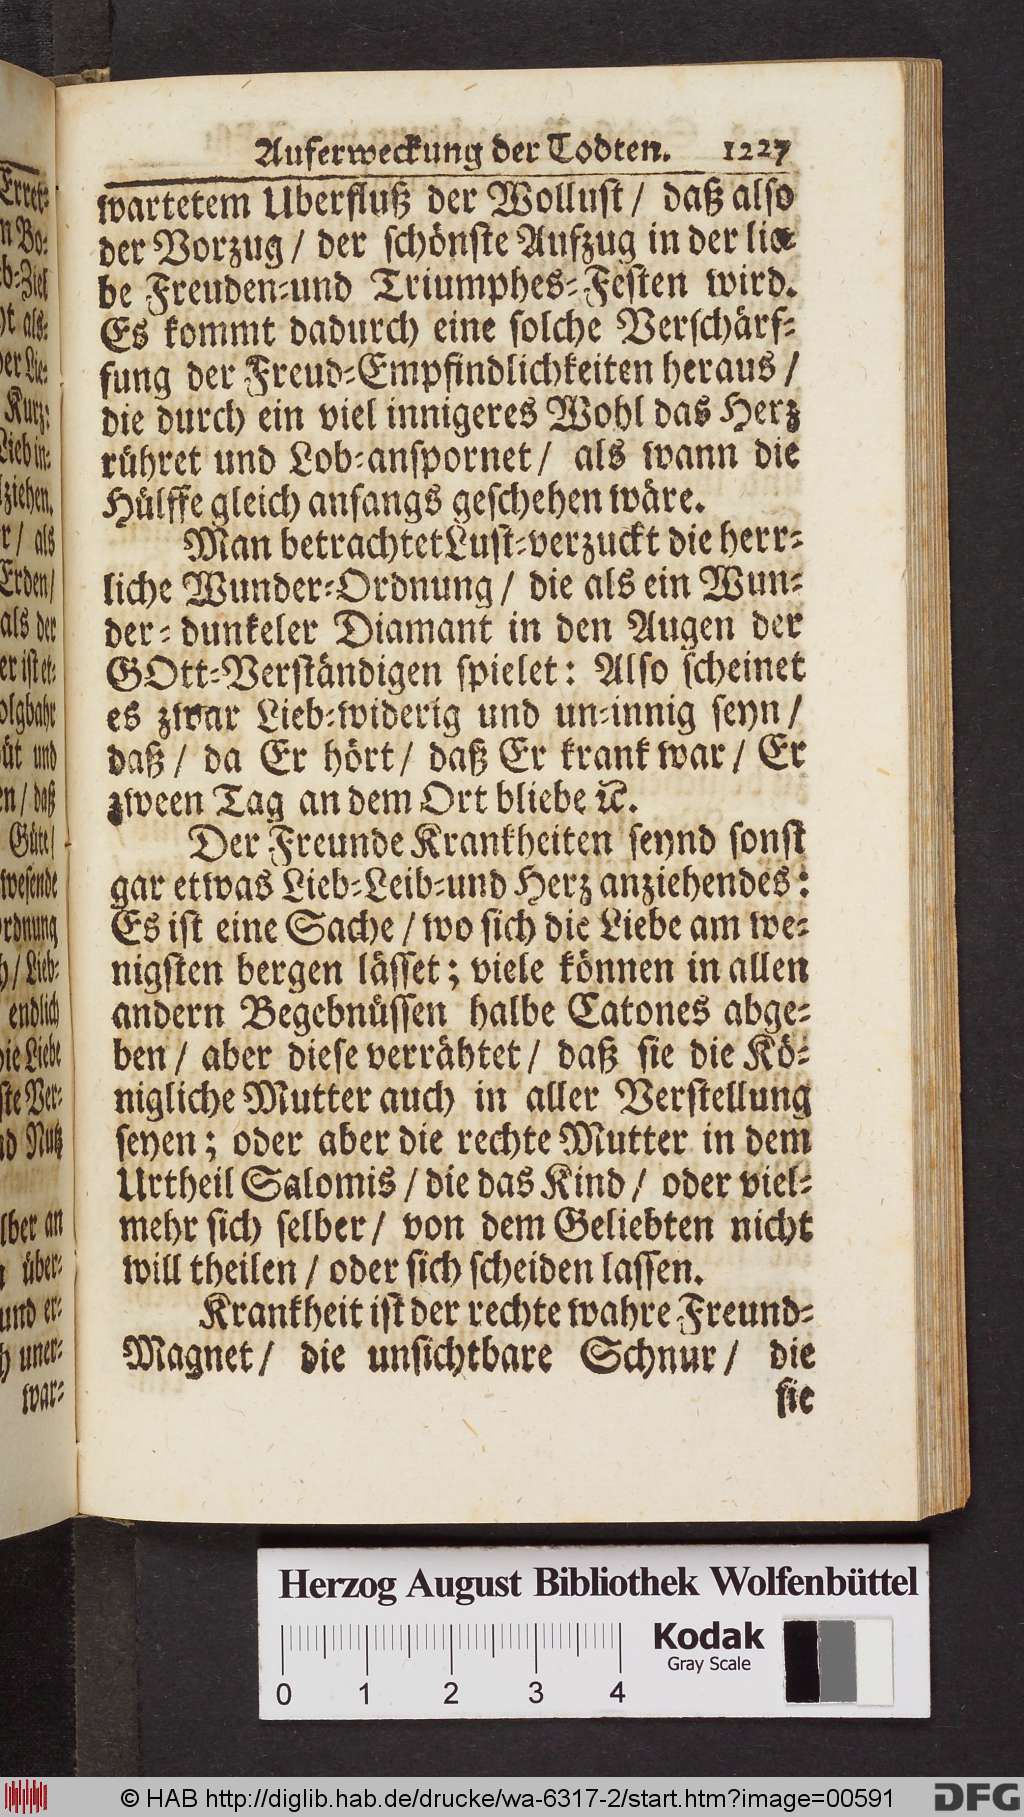 Auferweckung der Todten. 1227
wartetem Uberfluß der Wollust / daß also
der Vorzug / der schönste Aufzug in der lie
be Freuden-und Triumphes-Festen wird.
Es kommt dadurch eine solche Verschärf-
fung der Freud-Empfindlichkeiten heraus /
die durch ein viel innigeres Wohl das Herz
rühret und Lob-anspornet / als wann die
Hülffe gleich anfangs geschehen wäre.
Man betrachtet Lust-verzuckt die herr-
liche Wunder-Ordnung / die als ein Wun-
der-dunkeler Diamant in den Augen der
GOtt-Verständigen spielet: Also scheinet
es zwar Lieb-widerig und un-innig seyn /
daß / da Er hört / daß Er krank war / Er
zween Tag an dem Ort bliebe ꝛc.
Der Freunde Krankheiten seynd sonst
gar etwas Lieb-Leib-und Herz anziehendes:
Es ist eine Sache / wo sich die Liebe am we-
nigsten bergen lässet; viele können in allen
andern Begebnüssen halbe Catones abge-
ben / aber diese verrähtet / daß sie die Kö-
nigliche Mutter auch in aller Verstellung
seyen; oder aber die rechte Mutter in dem
Urtheil Salomis / die das Kind / oder viel-
mehr sich selber / von dem Geliebten nicht
will theilen / oder sich scheiden lassen.
Krankheit ist der rechte wahre Freund-
Magnet / die unsichtbare Schnur / die
sie
Herzog August Bibliothek Wolfenbüttel
Kodak
Gray Scale
0 1 2 3 4
© HAB http://diglib.hab.de/drucke/wa-6317-2/start.htm?image=00591
DFG